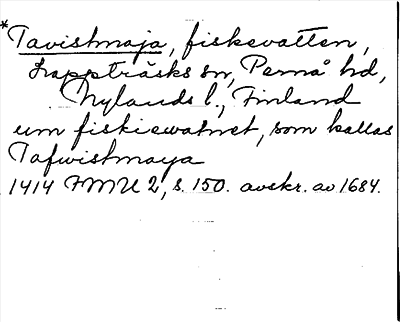 *Tavistmaja, fiskevatten,
Lappträsks sn, Pernå hd,
Nylands l., Finland
um fiskiewatnet, som kallas
Tafwistmaya
1414 FMU 2, s. 150. avskr. av 1684.